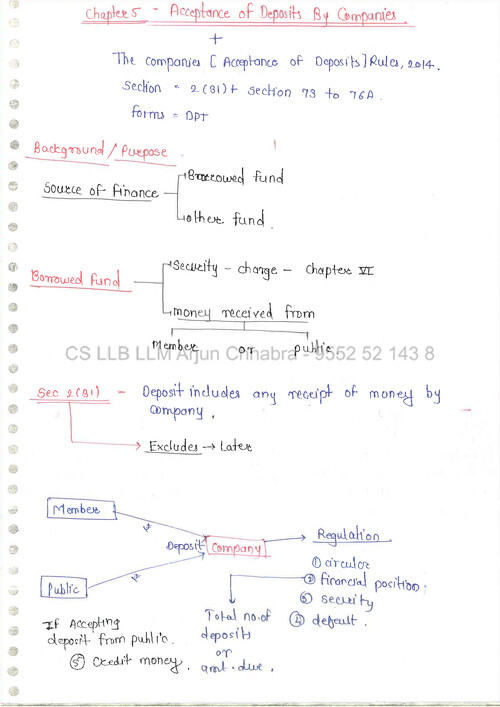 Chapter 5 - Acceptance of Deposits By Companies.
+
The companies [Acceptance of Deposits] Rules, 2014.
Section = 2(31) + Section 73 to 76A.
forms = DPT
Background / Purpose.
Source of finance
Borrowed fund
other fund.
Borrowed fund
Security - charge - Chapter VI
money received from
Member or public
CS LLB LLM Arjun Chhabra - 9552 52 143 8
Sec 2(31) - Deposit includes any receipt of money by
company.
Excludes → Later
Member
Public
₹
₹
Deposit Company
Regulation
① circular
② financial position.
③ security
④ default.
Total no. of
deposits
or
amt. due.
If Accepting
deposit from public.
⑤ Credit money.